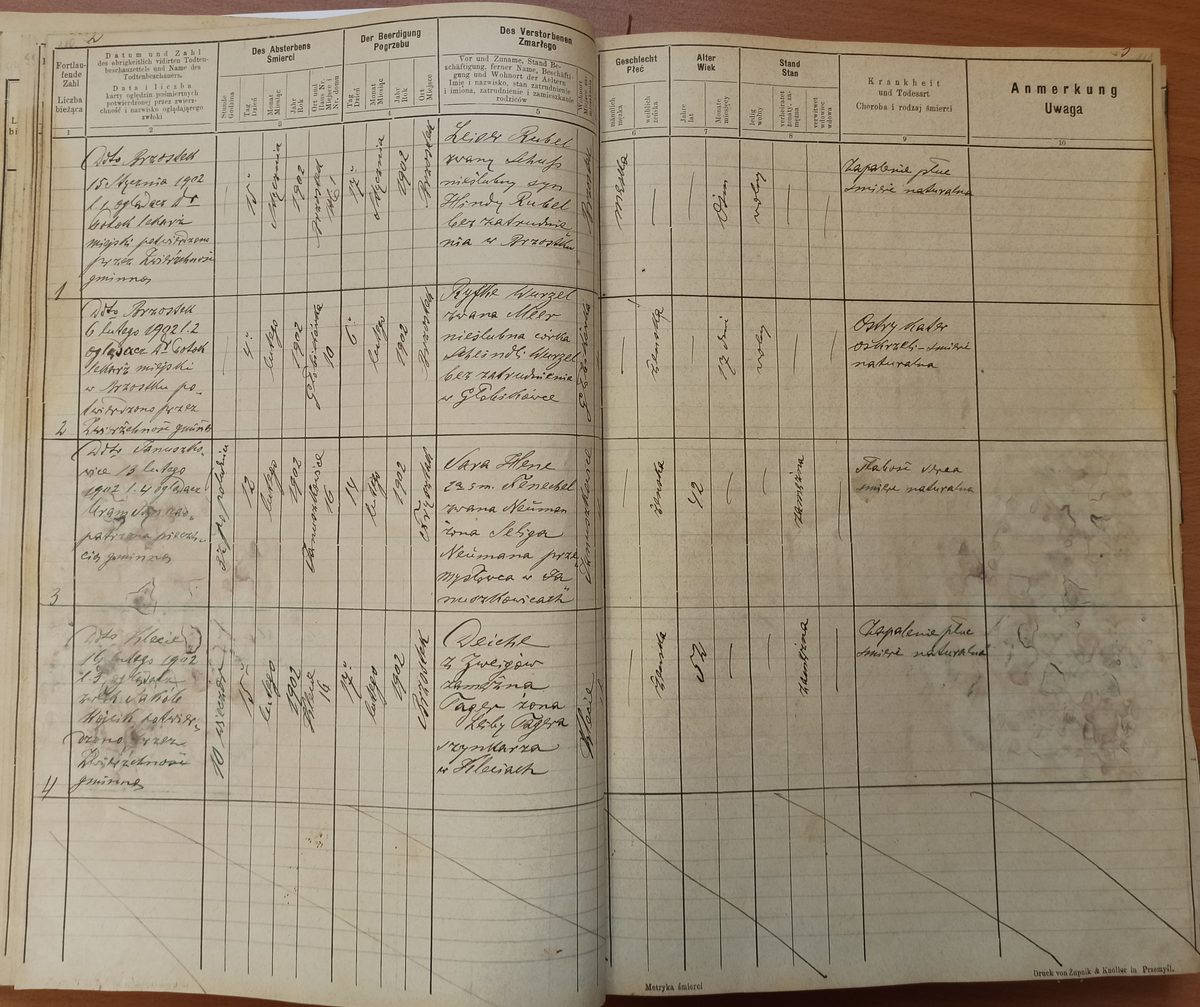 2
3
Fortlau-
fende
Zahl
Liczba
bieżąca
Datum und Zahl
des obrigkeitlich vidirten Todten-
beschauzettels und Name des
Todtenbeschauers.
Data i liczba
karty oględzin pośmiertnych
potwierdzonej przez zwierz-
chność i nazwisko oglądającego
zwłoki
Des Absterbens
Śmierci
Stunde
Godzina
Tag
Dzień
Monat
Miesiąc
Jahr
Rok
Ort und
Haus-Nr.
Miejsce i
Nr. domu
Der Beerdigung
Pogrzebu
Tag
Dzień
Monat
Miesiąc
Jahr
Rok
Ort
Miejsce
Des Verstorbenen
Zmarłego
Vor und Zuname, Stand Be-
schäftigung, ferner Name, Beschäfti-
gung und Wohnort der Aeltern
Imię i nazwisko, stan zatrudnienie
i imiona, zatrudnienie i zamieszkanie
rodziców
Wohnort
Geschlecht
Płeć
männlich
męzka
weiblich
żeńska
Alter
Wiek
Jahre
lat
Monate
miesięcy
Stand
Stan
ledig
wolny
verheiratet
żonaty, za-
mężna
verwitwet
wdowiec
wdowa
Krankheit
und Todesart
Choroba i rodzaj śmierci
Anmerkung
Uwaga
1 2 3 4 5 6 7 8 9 10
1
Dtto Brzostek
15 Stycznia 1902
l. 1 oglądacz Dr
lekarz
miejski potwierdzono
przez Zwierzchność
gminną
—
15
Stycznia
1902
Brzostek
17
Stycznia
1902
Brzostek
Rubel
zwany Schuss
nieślubny syn
Hindy Rubel
bez zatrudnie-
nia w Brzostku
Brzostek
męska
—
—
wolny
—
—
Zapalenie płuc
śmierć naturalna
2
Dtto Brzostek
6 lutego 1902 l. 2
oglądacz Dr
lekarz miejski
w Brzostku po-
twierdzono przez
Zwierzchność gminną
—
4
lutego
1902
10
6
lutego
1902
Brzostek
Wurzel
zwana Meer
nieślubna córka
Scheindli Wurzel
bez zatrudnienia
w
—
żeńska
—
17 dni
wolny
—
—
Ostry katar
oskrzeli – śmierć
naturalna
3
Dtto Januszko-
wice 13 lutego
1902 l. 4 oglądacz
patrzona pieczę-
cią gminną
popołudniu
12
lutego
1902
Januszkowice
14
lutego
1902
Brzostek
Sara Hene
Fenechel
zwana Neuman
żona Seliga
Neumana prze
mysłowca w Ja
nuszkowicach
Januszkowice
—
żeńska
42
—
—
zamężna
—
Słabość serca
śmierć naturalna
4
Dtto Klecie
16 lutego 1902
l. 3 oglądacz
zwłok Jakób
Wójcik potwier-
dzono przez
Zwierzchność
gminną
10 wieczor
15
lutego
1902
Klecie
17
lutego
1902
Brzostek
Deiche
z Zweigów
zamężna
Tager żona
Leiby Tagera
szynkarza
w Kleciach
Klecie
—
żeńska
52
—
—
zamężna
—
Zapalenie płuc
śmierć naturalna
Metryka śmierci
Druck von Żupnik & Knoller in Przemyśl.